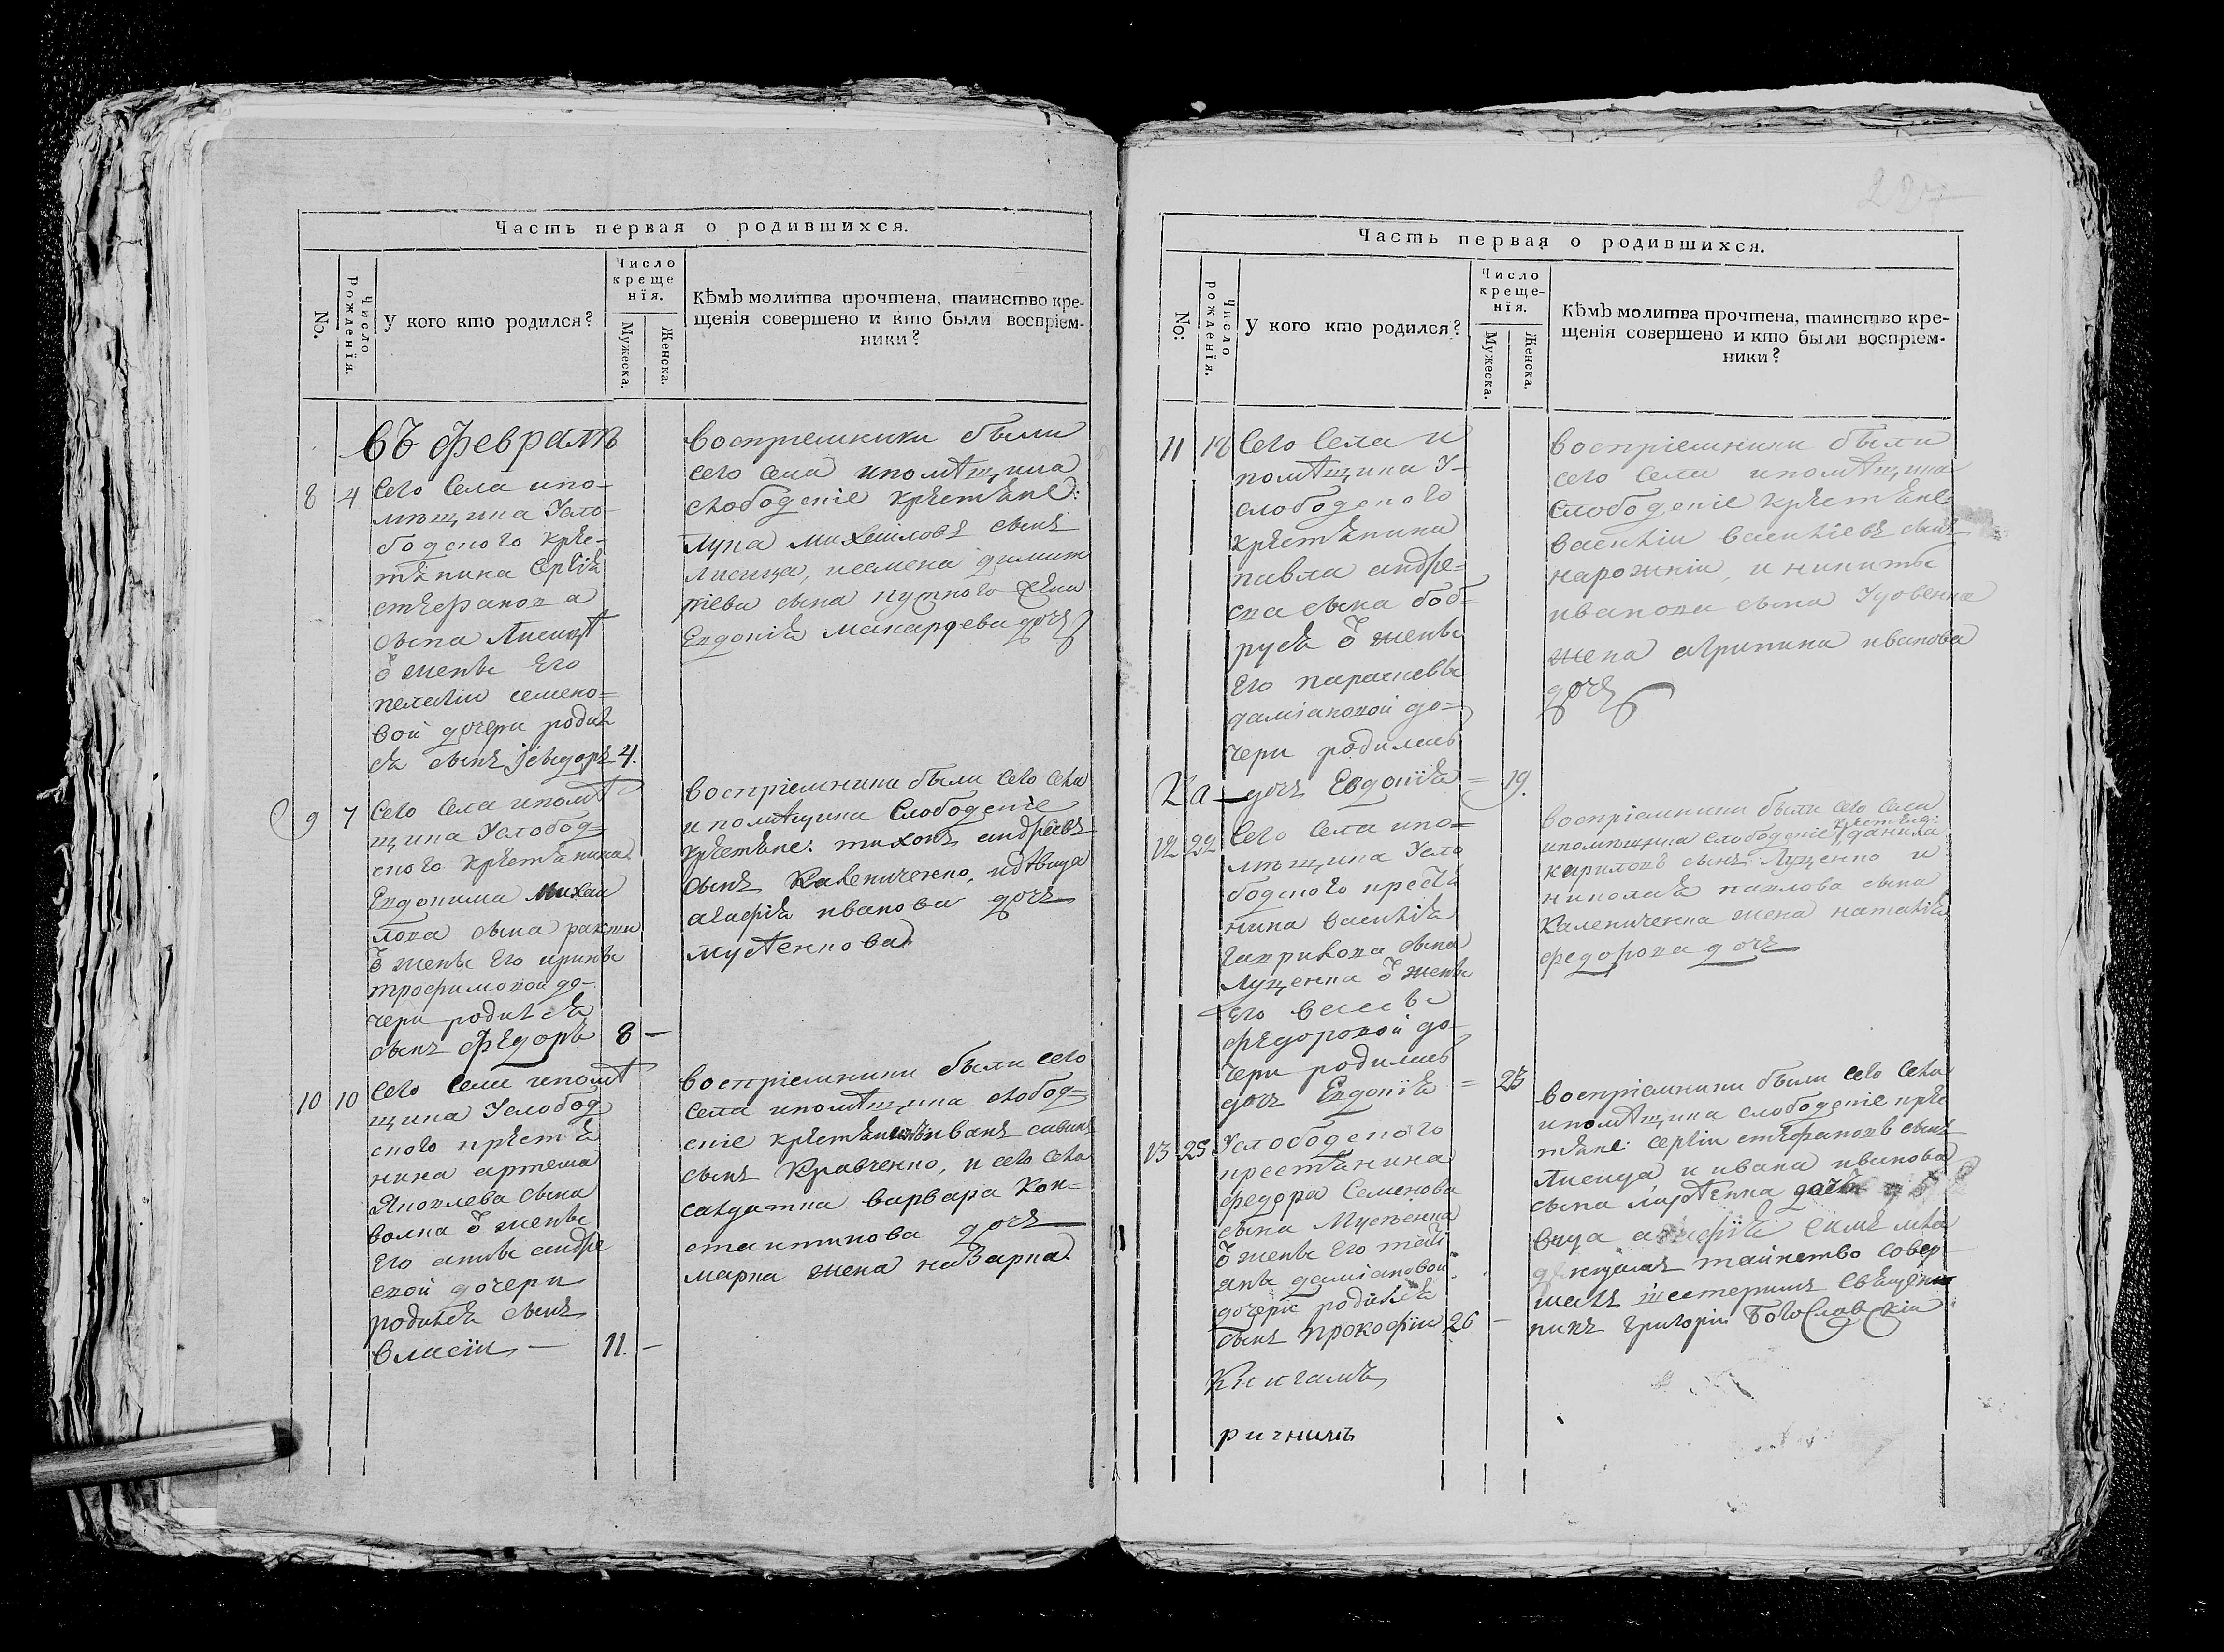 Часть первая о родившихся.
No.
Число рожденїя.
У кого кто родился?
Число креще нїя.
Мужеска.
Женска.
Кѣмъ молитва прочтена, таинство кре-
щенія совершено и кто были воспріем-
ники?
въ февралѣ
8 4 Сего села и по-
мѣщика Усло-
бодского кре-
тянина Сергія
стефанова
сына Лисици
ѿ жены его
пелагіи семено=
вой дочери родил
ся сынъ 4.
воспріемники были
сего села и помѣщика
слободскіе крестяне:
Лупа михайловъ сынъ
Лисица, и семена димит
ріева сына жена
Евдокія макарѣева дочь
9 7 Сего села и помѣ
щика Услобод
ского крестянина
Евдокима михаи
лова сына
ѿ жены его ирины
трофимовой до-
чери родился
сынъ Федоръ 8 -
воспріемники были сего села
и помѣщика Слободскіе
крестяне: тихонъ андреевъ
сынъ Калениченко, и дѣвица
агафія иванова дочь
мусѣенкова
10 10 Сего села и помѣ
щика Услобод
ского крестя
нина артема
Яковлева сына
волка ѿ жены
его анны андре
евой дочери
родился сынъ
власіи - 11. -
воспріемники были сего
села и помѣщика слобод=
скіе крестяне иванъ савинъ
сынъ Кравченко, и сего села
салдатка варвара Кон=
стантинова дочь
марка жена назарка
Часть первая о родившихся.
No:
Число рожденїя.
У кого кто родился?
Число креще- нїя.
Мужеска.
Женска.
Кѣмъ молитва прочтена, таинство кре-
щенія совершено и кто были воспріем-
ники?
11 18 Сего села и
помѣщика У-
слободского
крестянина
павла андре=
ева сына боб=
руся ѿ жены
его парасковы
даміановой до=
чери родилась
дочь Евдокїя = 19.
воспріемники были
сего села и помѣщика
слободскіе крестяне
василіи василіевъ сынъ
нарожніи, и никиты
иванова сына Удовенка
жена агрипина иванова
дочь
12 22 Сего села и по=
мѣщика Усло
бодского крестя
нина василія
гаврилова сына
Луценка ѿ жены
его
федоровой до
чери родилась
дочь Евдокїя = 23
воспріемники были сего села
и помѣщика слободскіе крестяне: данила
кириловъ сынъ Луценко и
николая павлова сына
Калениченка жена наталія
федорова дочь
13 25 Услободского
крестянина
федора Семенова
сына Мусѣенка
ѿ жены его тати
аны даміановой
дочери родился
сынъ прокофіи 26 -
воспріемники были сего села
и помѣщика слободскіе кре
тяне: сергіи стефановъ сынъ
Лисица и ивана иванова
сына
вица
таинство совер
шалъ священ
никъ григоріи Богославскіи
Книгамъ